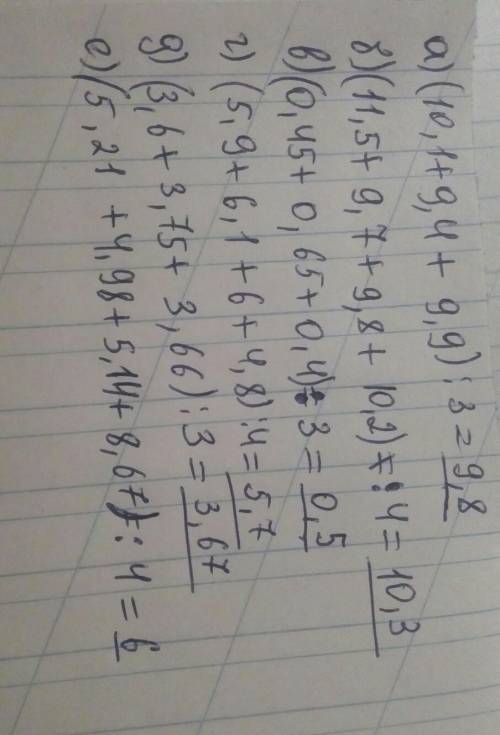 а) (10,1+9,4 + 9,9) : 3 = 9,8
б) (11,5+ 9,7+9,8 + 10,2) : 4 = 10,3
в) (0,45+ 0,65+0,4) : 3 = 0,5
г) (5,9+ 6,1 + 6 + 4,8) : 4 = 5,7
д) (3,6+ 3,75+ 3,66) : 3 = 3,67
е) (5,21 +4,98+ 5,14+ 8,67) : 4 = 6